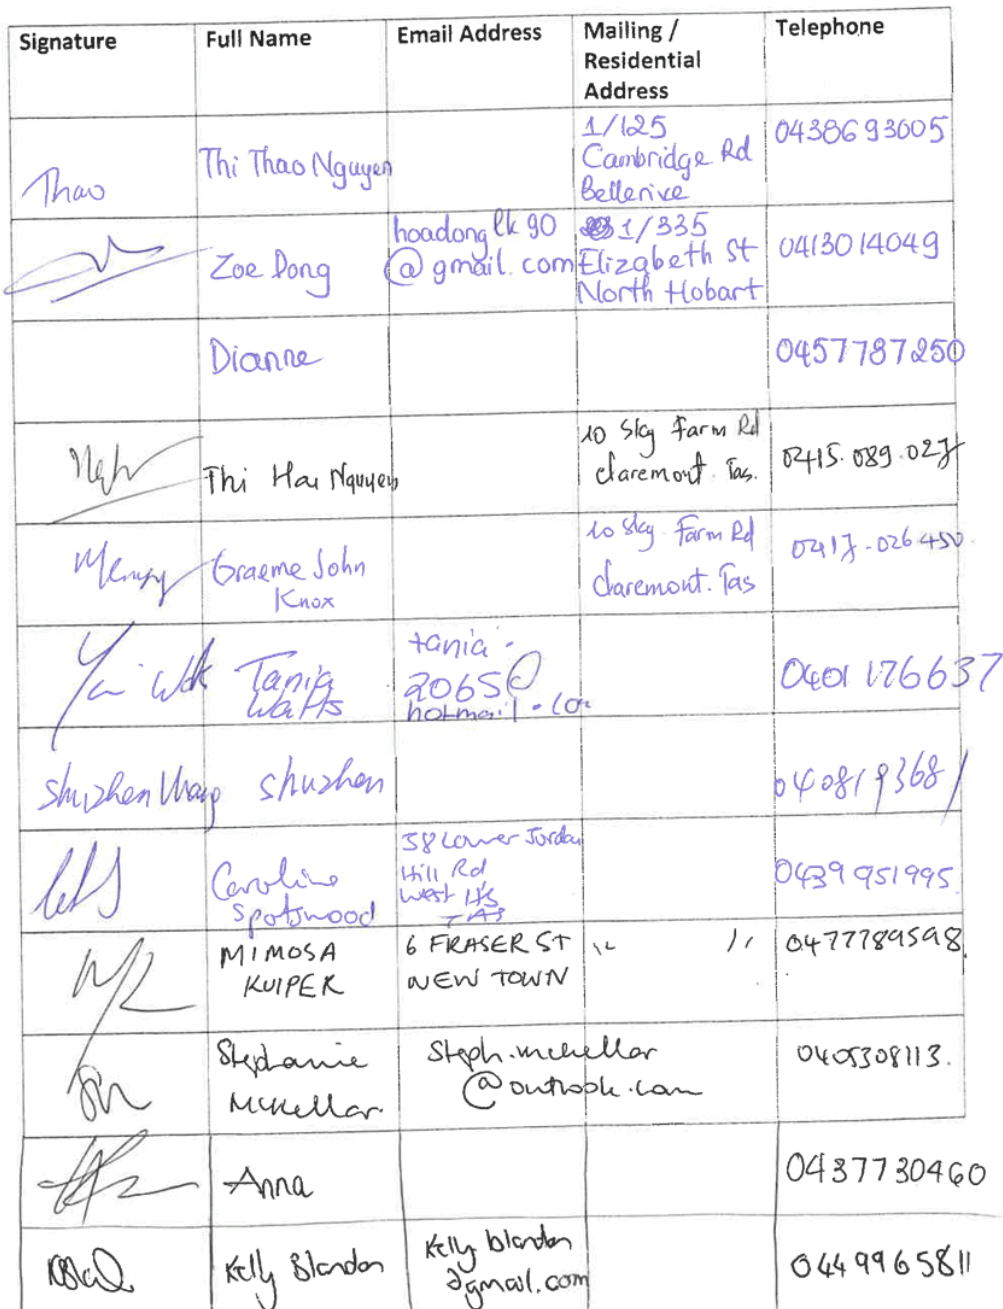 Signature Full Name Email Address Mailing / Residential Address Telephone
Thao Thi Thao Nguyen 1/125 Cambridge Rd Bellerive 0438693605
Zoe Dong hoadonglk90@gmail.com 1/335 Elizabeth St North Hobart 0413014049
Dianne 0457787250
Thi Hai Nguyen 10 Sky Farm Rd Claremont. Tas. 0415.089.027
Graeme John Knox 10 Sky Farm Rd Claremont. Tas 0417-026450
Tania Watts tania-2065@hotmail.com 0401 176637
shuzhen shuzhen 0408193681
Caroline Spotswood 38 Lower Jordan Hill Rd West H's TAS 0439951995
MIMOSA KUIPER 6 FRASER ST NEW TOWN " " 0477789598
Stephanie McKellar Steph.mckellar@outlook.com 0405308113.
Anna 0437730460
Kelly Blandon Kelly blandon@gmail.com 0449965811